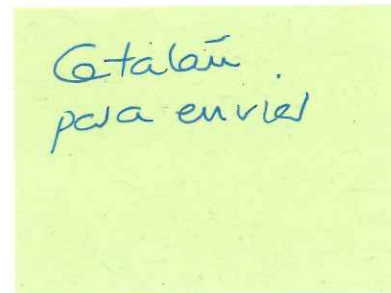 Catalán.
para enviar